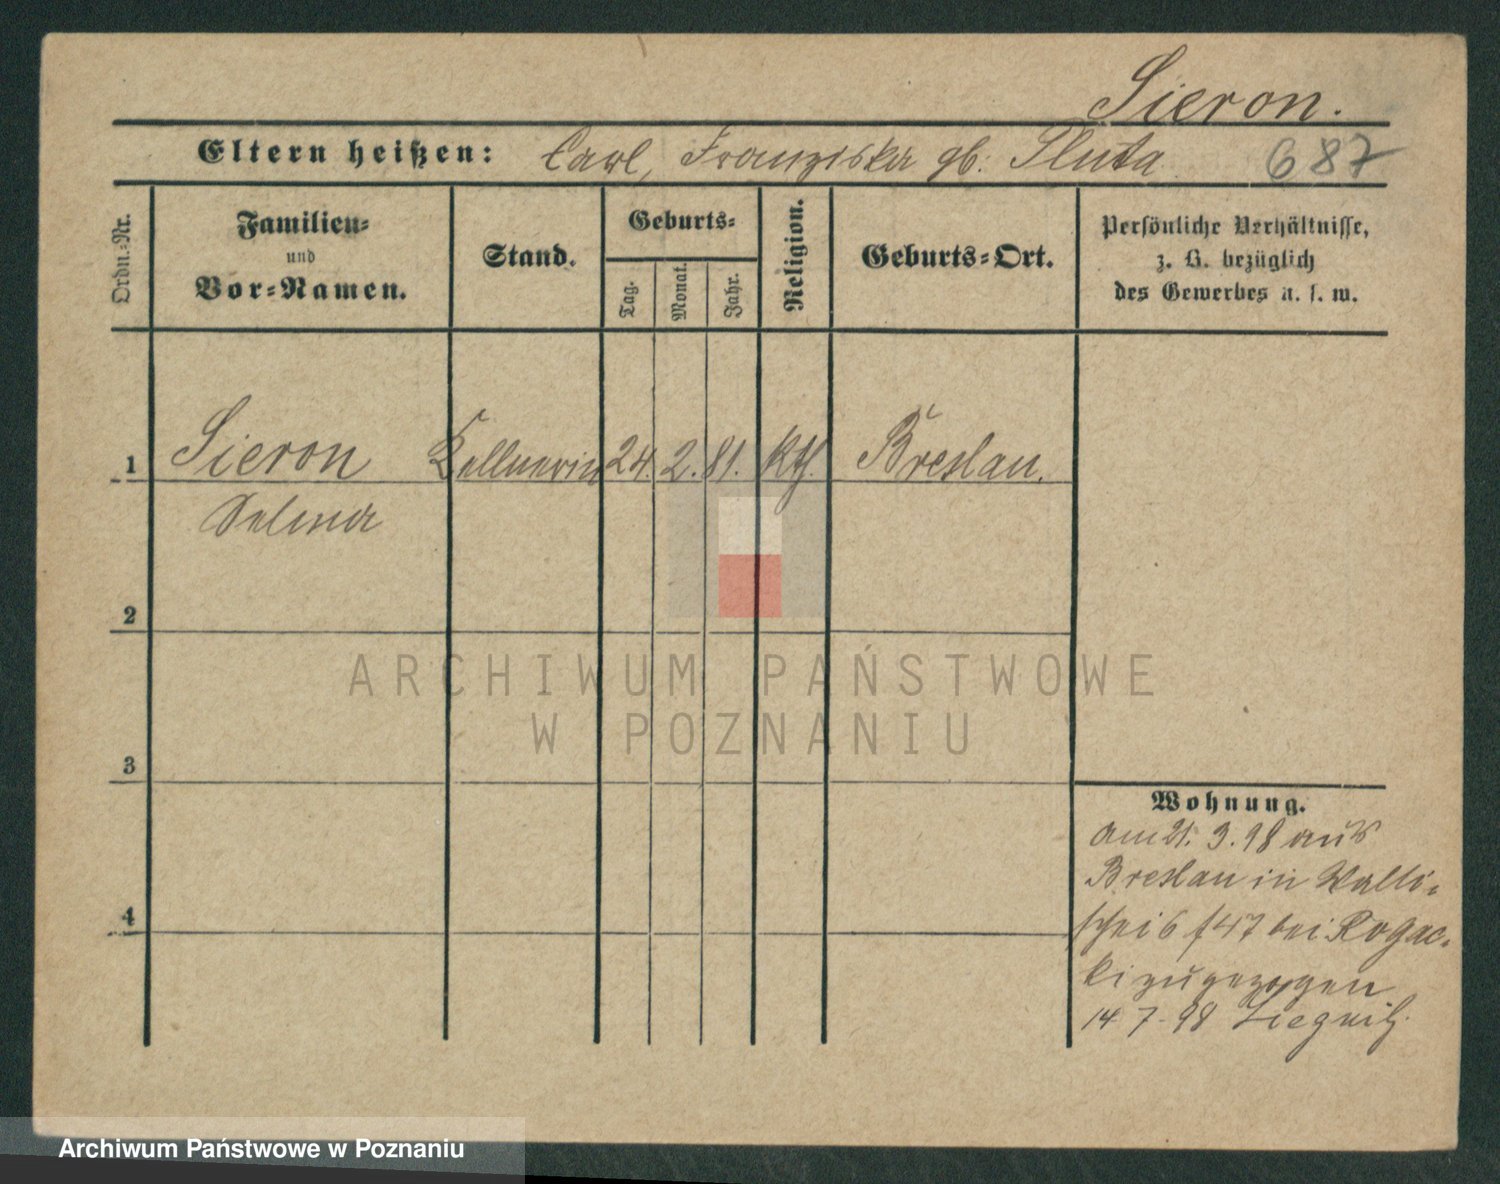 Sieron.
Eltern heißen: Carl, Franziska gb. Pluta 687
Ordn.-Nr.
Familien-
und
Vor-Namen.
Stand.
Geburts-
Tag.
Monat.
Jahr.
Religion.
Geburts-Ort.
Persönliche Verhältnisse,
z. B. bezüglich
des Gewerbes u. s. w.
1 Sieron Kellnerin 24. 2. 81. kth. Breslau.
Selma
2
3
4
Wohnung.
am 21. 3. 98 aus
Breslau in Walli-
schei 6 f 47 bei Rogac-
ki zugezogen
14. 7. 98 Liegnitz.
ARCHIWUM PAŃSTWOWE
W POZNANIU
Archiwum Państwowe w Poznaniu